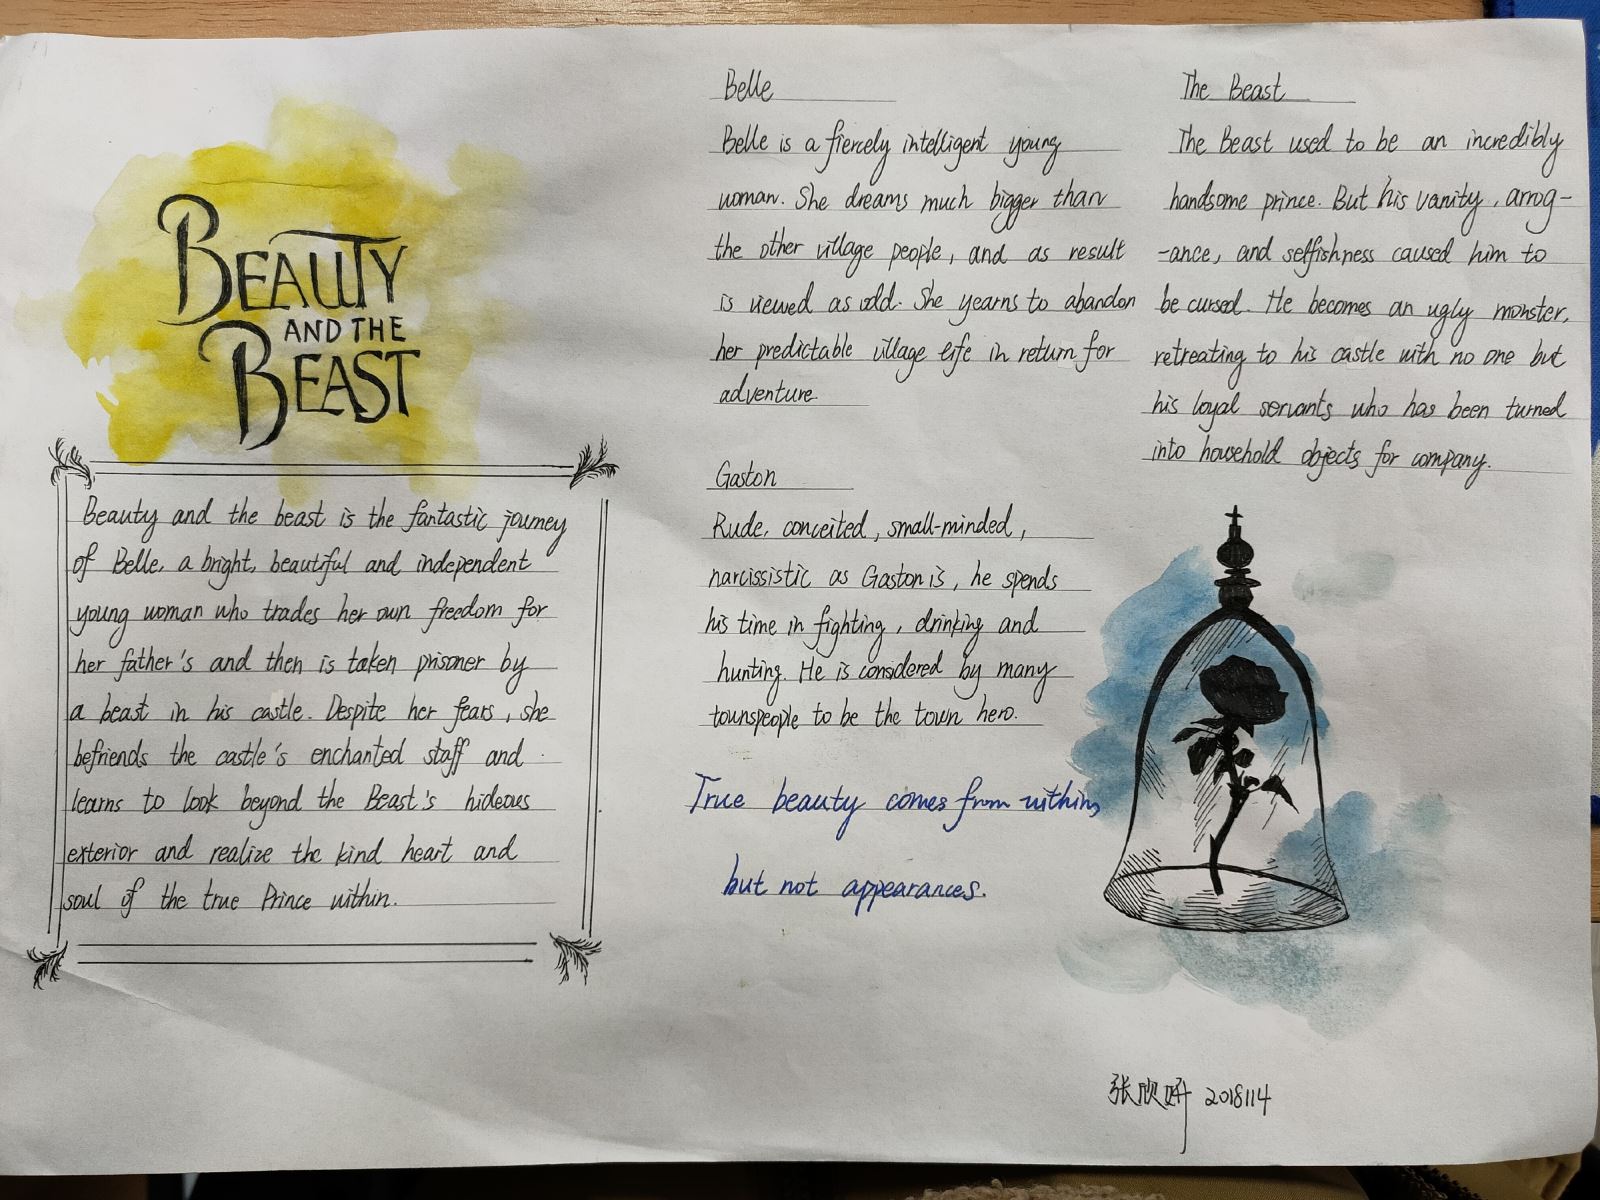 BEAUTY
AND THE
BEAST
Beauty and the beast is the fantastic journey
of Belle, a bright, beautiful and independent
young woman who trades her own freedom for
her father's and then is taken prisoner by
a beast in his castle. Despite her fears, she
befriends the castle's enchanted staff and
learns to look beyond the Beast's hideous
exterior and realize the kind heart and
soul of the true Prince within.
Belle
Belle is a fiercely intelligent young
woman. She dreams much bigger than
the other village people, and as result
is viewed as odd. She yearns to abandon
her predictable village life in return for
adventure.
Gaston
Rude, conceited, small-minded,
narcissistic as Gaston is, he spends
his time in fighting, drinking and
hunting. He is considered by many
townspeople to be the town hero.
True beauty comes from within,
but not appearances.
The Beast
The Beast used to be an incredibly
handsome prince. But his vanity, arrog-
-ance, and selfishness caused him to
be cursed. He becomes an ugly monster,
retreating to his castle with no one but
his loyal servants who has been turned
into household objects for company.
张欣妍 2018114